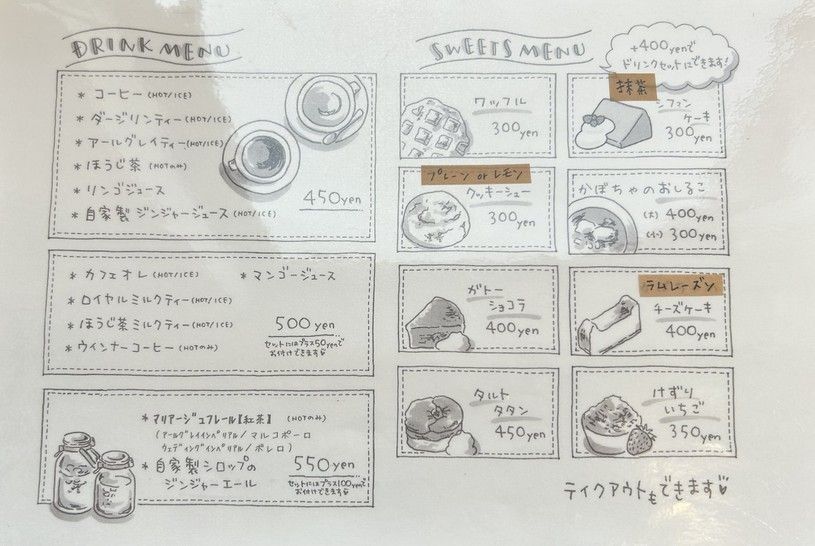 DRINK MENU
* コーヒー (HOT/ICE)
* ダージリンティー (HOT/ICE)
* アールグレイティー (HOT/ICE)
* ほうじ茶 (HOTのみ)
* リンゴジュース
* 自家製 ジンジャージュース (HOT/ICE)
450yen
* カフェオレ (HOT/ICE)
* マンゴージュース
* ロイヤルミルクティー (HOT/ICE)
* ほうじ茶ミルクティー (HOT/ICE)
* ウインナーコーヒー (HOTのみ)
500yen
セットにはプラス50yenで
お付けできます
* マリアージュフレール【紅茶】 (HOTのみ)
(アールグレイインペリアル/マルコポーロ
ウェディングインペリアル/ボレロ)
* 自家製シロップの
ジンジャーエール
550yen
セットにはプラス100yenで
お付けできます
SWEETS MENU
+400yenで
ドリンクセットにできます!
ワッフル
300yen
抹茶
シフォン
ケーキ
300yen
プレーン or レモン
クッキーシュー
300yen
かぼちゃのおしるこ
(大) 400yen
(小) 300yen
ガトー
ショコラ
400yen
ラムレーズン
チーズケーキ
400yen
タルト
タタン
450yen
けずり
いちご
350yen
テイクアウトもできます